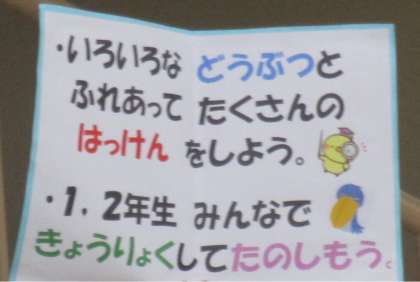 ・いろいろな どうぶつと
ふれあって たくさんの
はっけん をしよう。
・1、2年生 みんなで
きょうりょくしてたのしもう。